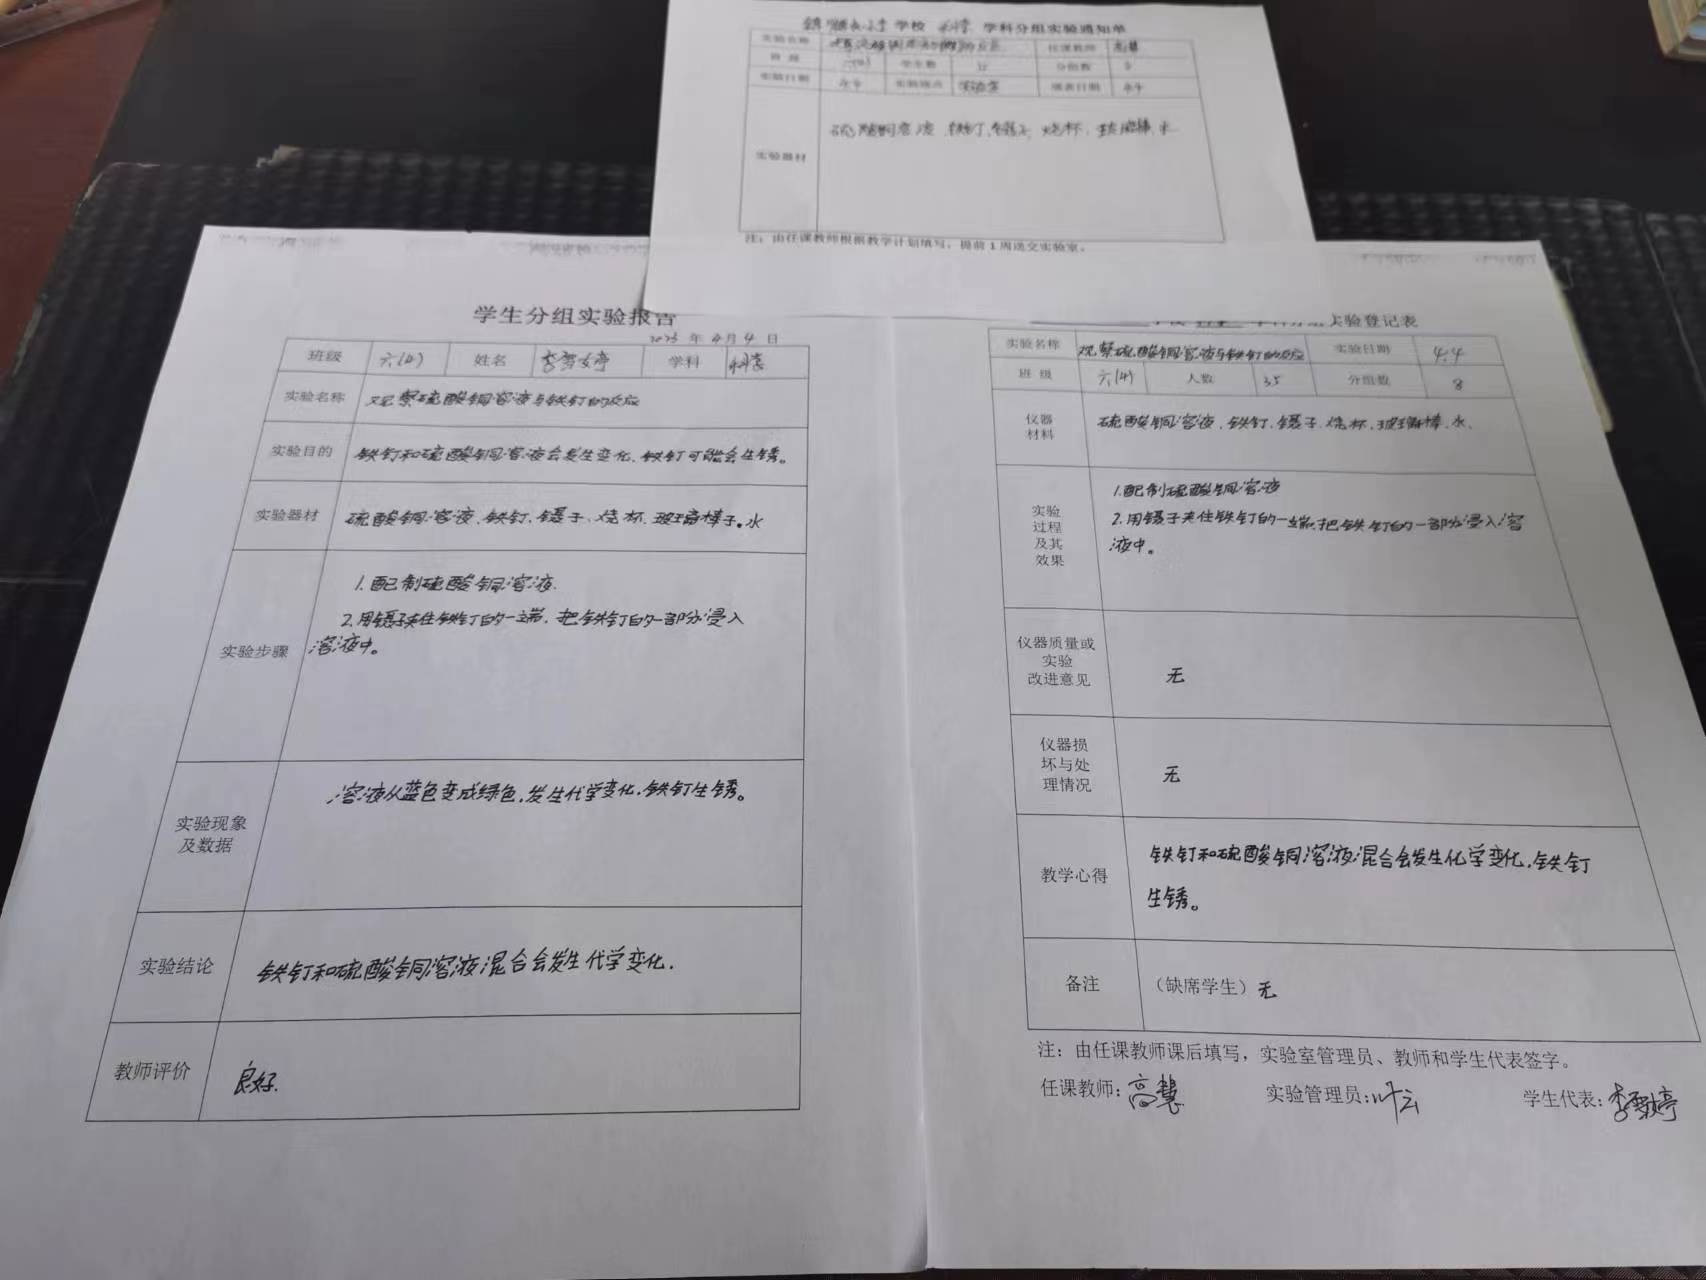 学校 科学 学科分组实验通知单
实验名称 任课教师 高慧
班 级 六(4) 学生数 分组数
实验日期 4.4 实验地点 实验室 填表日期 4.4
实验器材 硫酸铜溶液、铁钉、镊子、烧杯、玻璃棒、水
注：由任课教师根据教学计划填写，提前1周送交实验室。
学生分组实验报告
2023 年 4 月 4 日
班级 六(4) 姓名 学科 科学
实验名称 观察硫酸铜溶液与铁钉的反应
实验目的 铁钉和硫酸铜溶液会发生变化、铁钉可能会生锈。
实验器材 硫酸铜溶液、铁钉、镊子、烧杯、玻璃棒子。水
实验步骤
1.配制硫酸铜溶液.
2.用镊子夹住铁钉的一端、把铁钉的一部分浸入
溶液中。
实验现象
及数据
溶液从蓝色变成绿色，发生化学变化，铁钉生锈。
实验结论 铁钉和硫酸铜溶液混合会发生化学变化.
教师评价 良好.
学科分组实验登记表
实验名称 观察硫酸铜溶液与铁钉的反应 实验日期 4.4
班 级 六(4) 人数 35 分组数 8
仪器
材料
硫酸铜溶液、铁钉、镊子、烧杯、玻璃棒、水、
实验
过程
及其
效果
1.配制硫酸铜溶液
2.用镊子夹住铁钉的一端，把铁钉的一部分浸入溶
液中。
仪器质量或
实验
改进意见
无
仪器损
坏与处
理情况
无
教学心得
铁钉和硫酸铜溶液混合会发生化学变化，铁钉
生锈。
备注 （缺席学生）无
注：由任课教师课后填写，实验室管理员、教师和学生代表签字。
任课教师：高慧 实验管理员：叶云 学生代表：